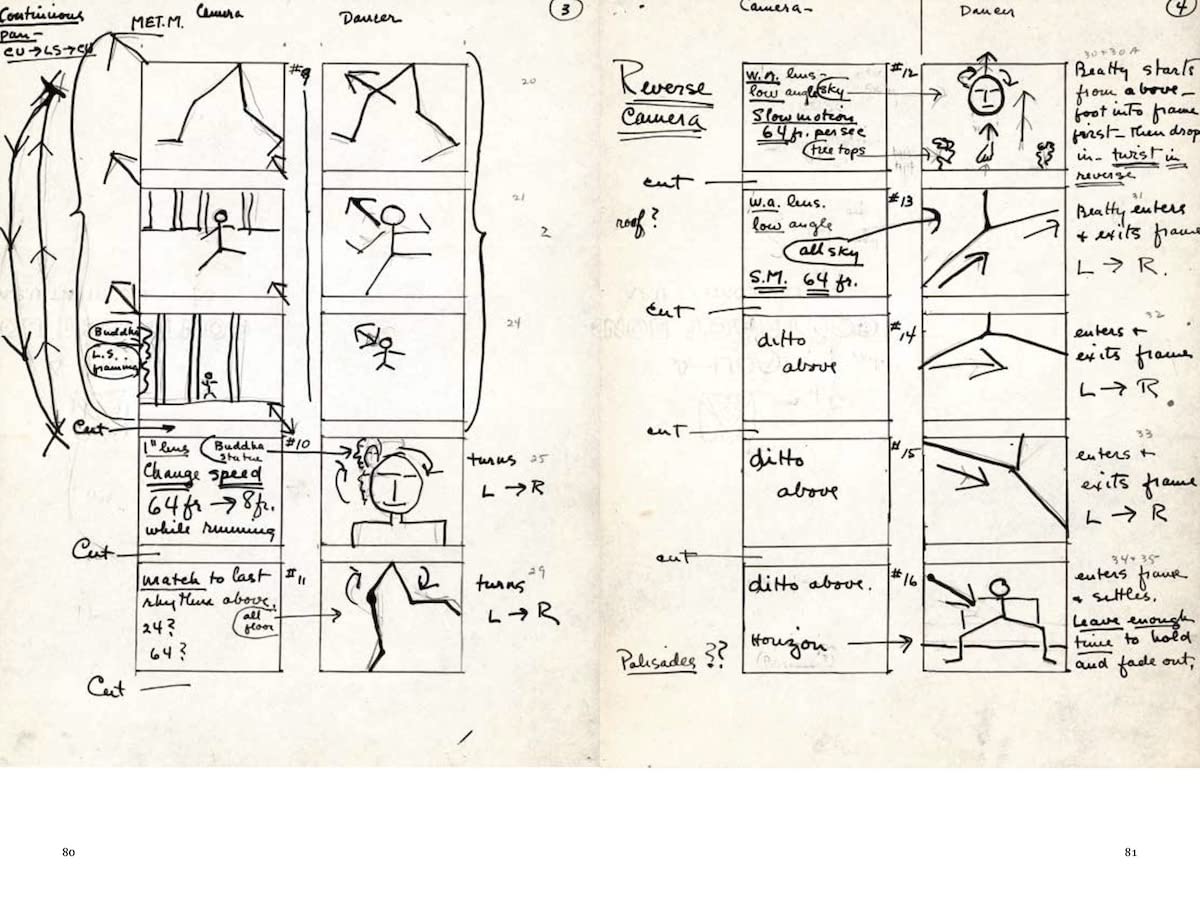 Continuious
pan—
CU → LS → CU
MET.M.
Camera
Dancer
3
#9
20
21
2
Buddha
L.S.
framing
24
Cut
#10
1" lens
Buddha
statue
Change speed
64 fr → 8 fr.
while running
turns 25
L → R
Cut
#11
match to last
rhythm above.
24?
64?
all
floor
turns 29
L → R
Cut
80
Camera—
Dancer
4
Reverse
Camera
W.A. lens—
low angle sky
Slow motion
64 fr. per sec
tree tops
#12
30 + 30A
Beatty starts
from above—
foot into frame
first— then drop
in— twist in
reverse
cut
roof?
w.a. lens.
low angle
all sky
S.M. 64 fr.
#13
31
Beatty enters
+ exits frame
L → R.
cut
ditto
above
#14
32
enters +
exits frame
L → R
cut
ditto
above
#15
33
enters +
exits frame
L → R
cut
ditto above.
Horizon
#16
34 + 35
enters frame
+ settles.
Leave enough
time to hold
and fade out.
Palisades??
81